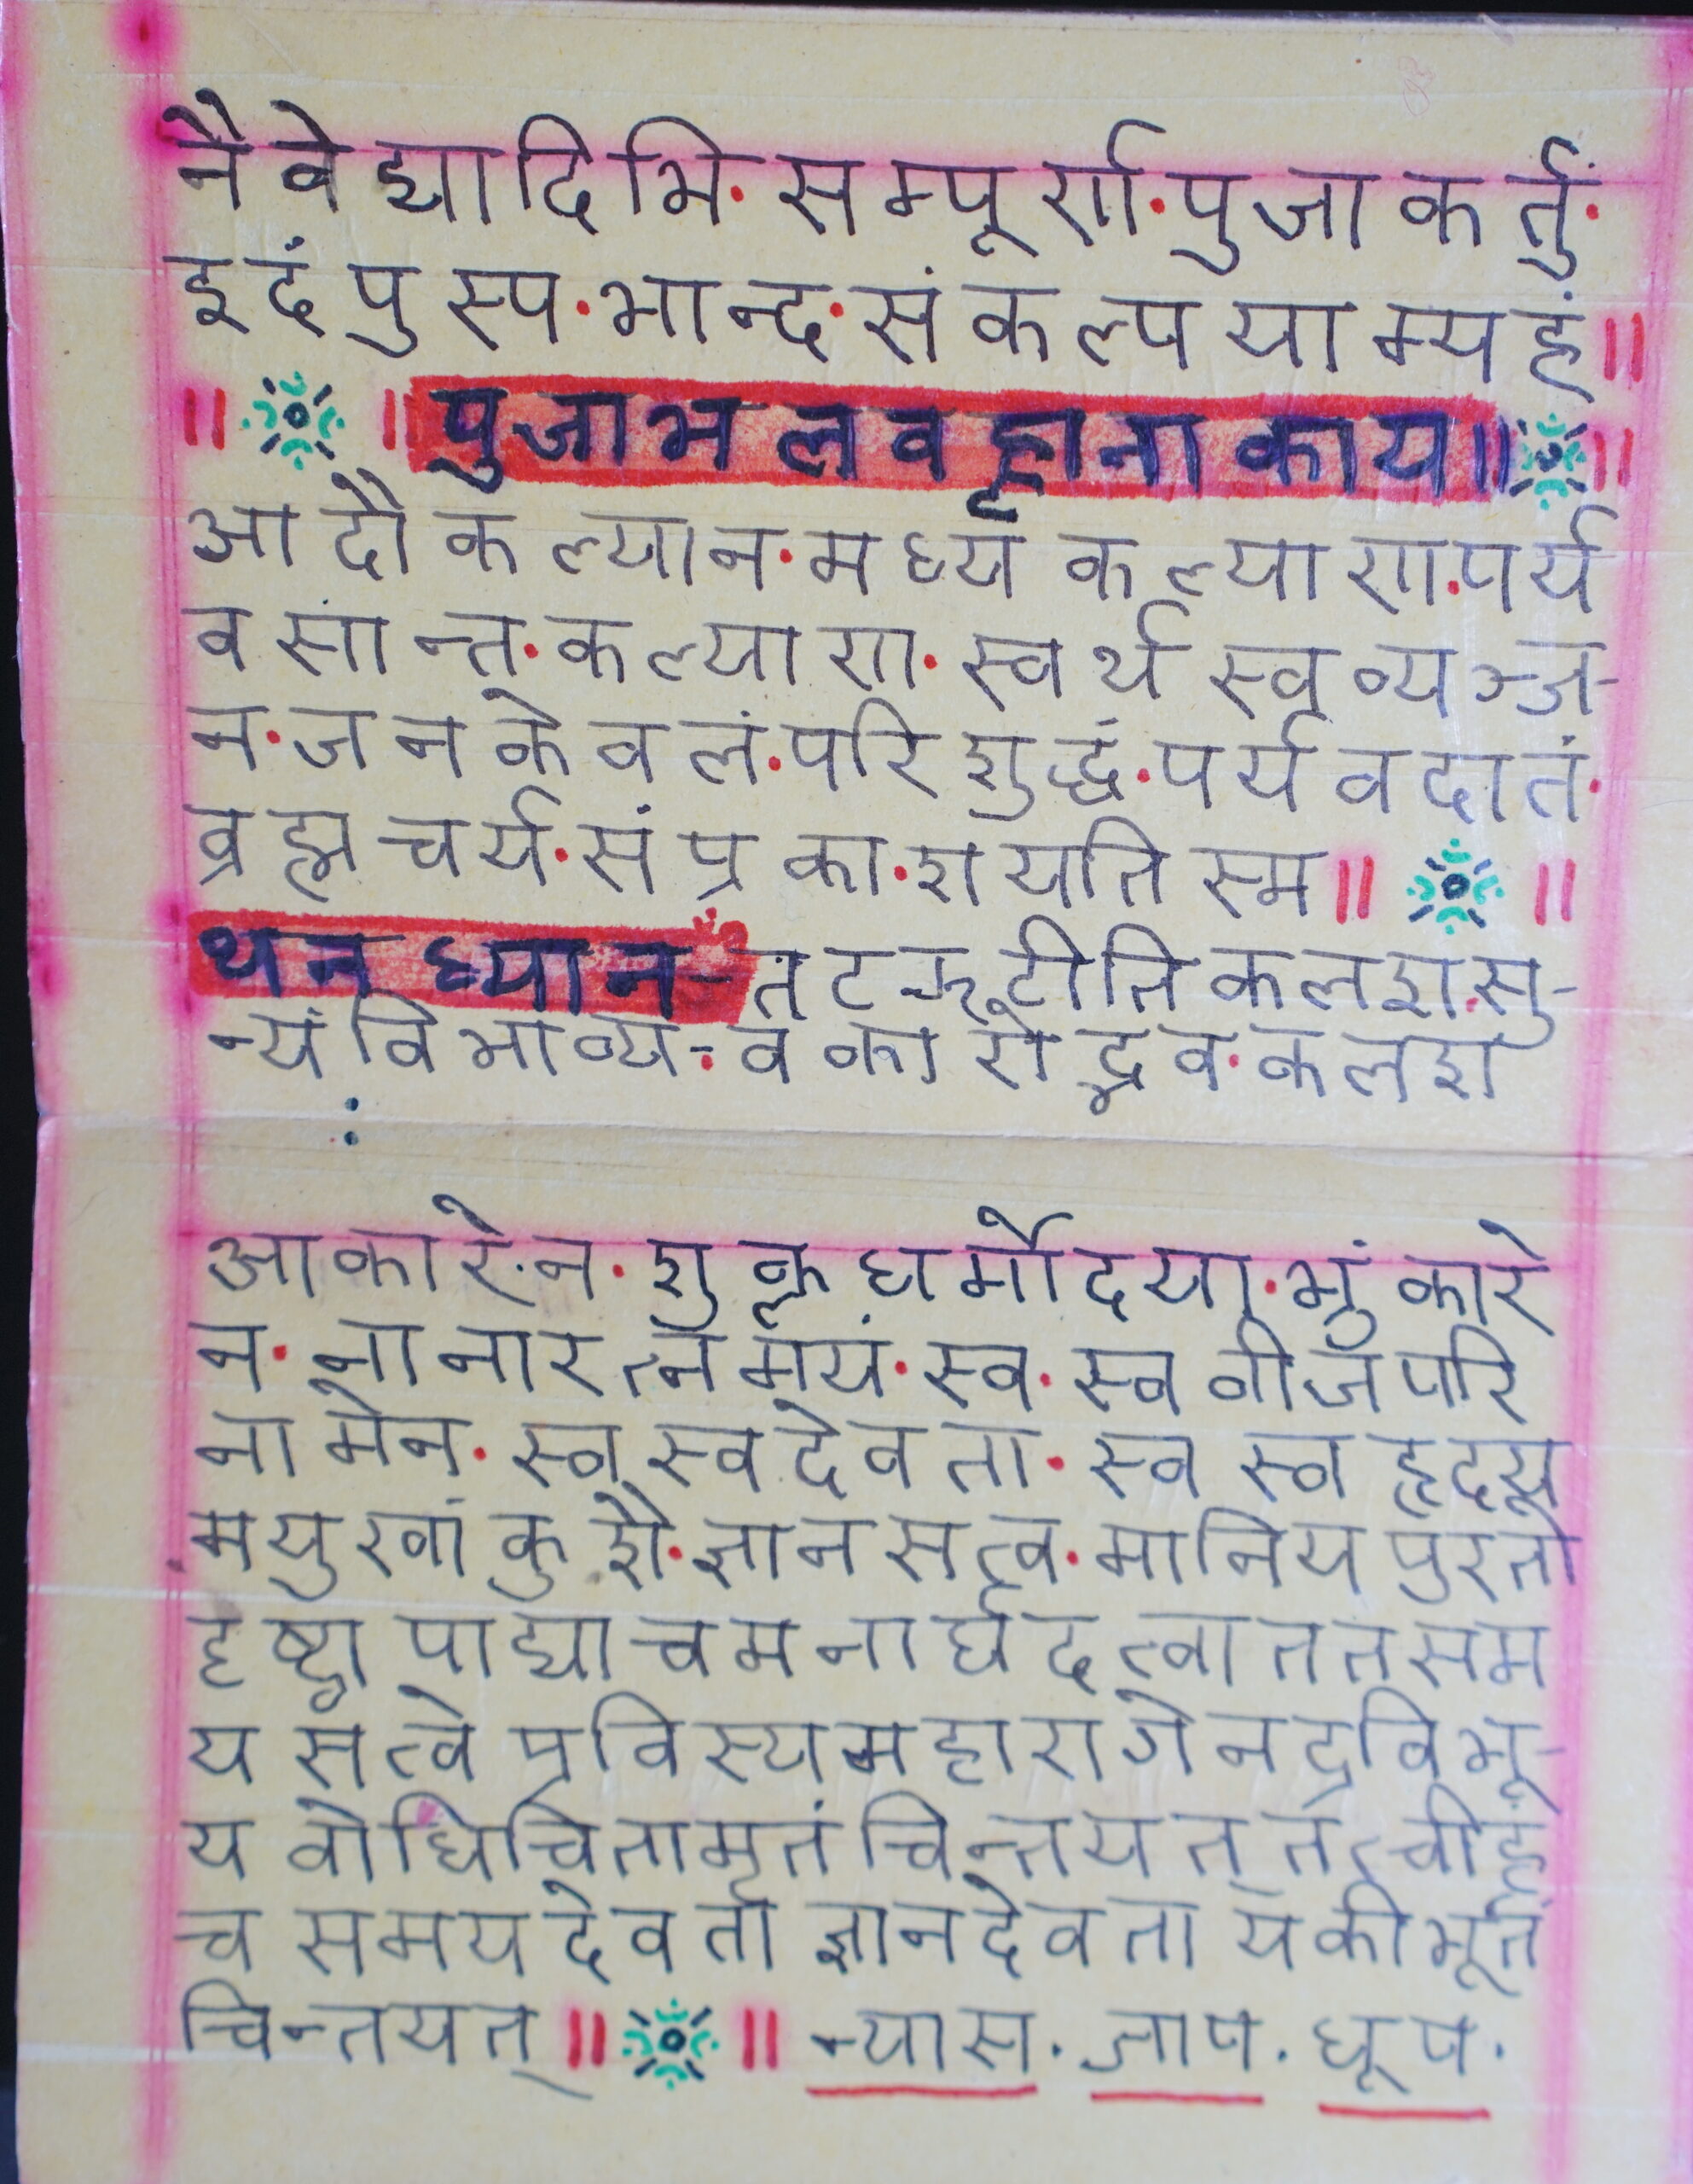 नैवेद्यादिभि·सम्पूर्ण·पुजा कर्तुं·
इदं पुस्प·भान्द·संकल्पयाम्यहं॥
॥ ॥ पुजाभलवह्लाना काय॥ ॥
आदौ कल्यान·मध्य कल्याण·पर्य
वसान्त·कल्याण·स्वर्थ स्वव्यञ्ज-
न·जन केवलं·परिशुद्धं·पर्यवदातं·
ब्रह्मचर्य·संप्रका·शयति स्म॥ ॥
थन ध्यान- तटत्रूटीति कलश·सु-
न्यं विभाव्य-·वकारोद्भव·कलश
आकारे·न·शुक्ल धर्मोदया·भुं कारे
न·नानारत्नमयं·स्व·स्व वीजँ परि
नामेन·स्व स्वदेवता·स्व स्व हृदसू
मयुखां कुशै·ज्ञानसत्व·मानिय पुरतो
दृष्ट्वा पाद्याचमनार्घं दत्वा तत सम
य सत्वे प्रविस्य महारागेन द्रविभू-
य वोधिचितामृतं चिन्तयत् तत्वीहं
च समयदेवता ज्ञानदेवता यकीभूतं
चिन्तयत्॥ ॥ न्यास·जाप·धूप·